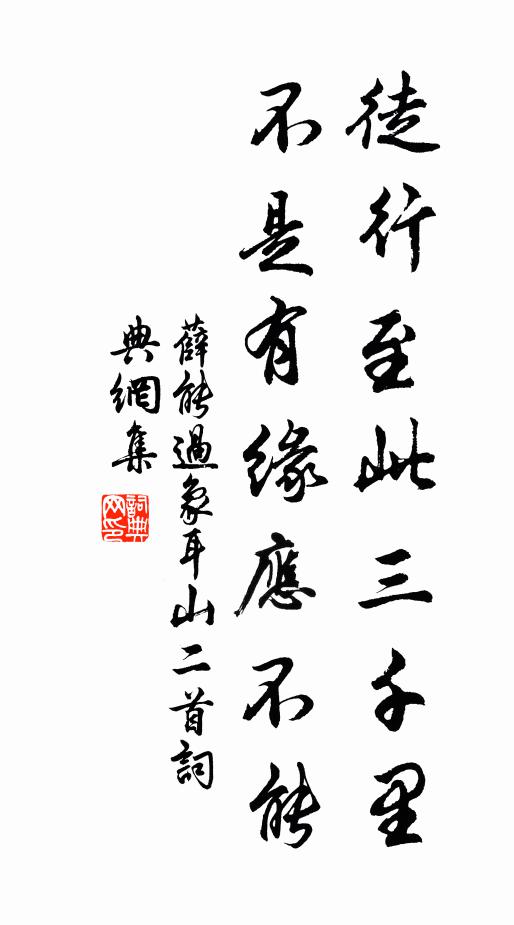 徒行至此三千里
不是有緣應不能
薛能過象耳山二首詞
典網集
詞典網印